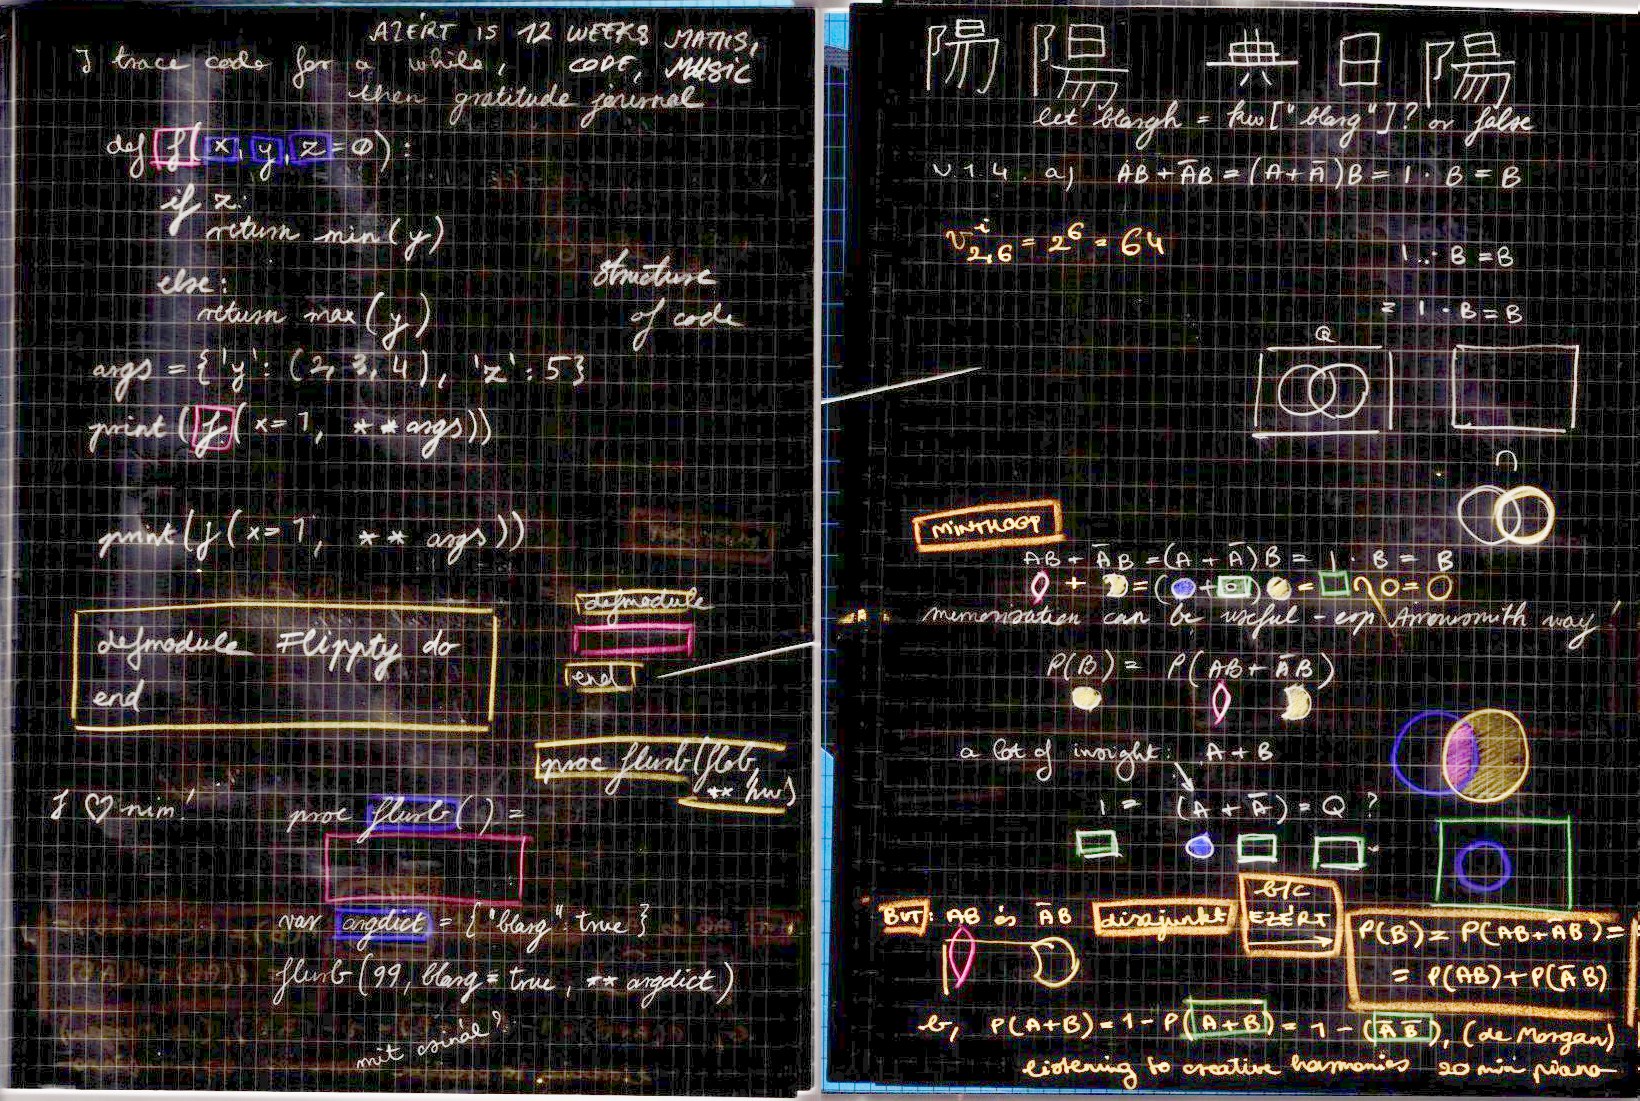 AZÉRT IS 12 WEEKS MATHS,
I trace code for a while, CODE, MUSIC
then gratitude journal
def f(x, y, z=0):
if z:
return min(y)
else:
return max(y)
structure
of code
args = {'y': (2, 3, 4), 'z': 5}
print(f(x=1, **args))
print(f(x=1, ** args))
defmodule Flippty do
end
defmodule
end
proc flurb(flob,
** kw)
I ♡ nim!
proc flurb() =
var argdict = {"blarg": true}
flurb(99, blarg=true, ** argdict)
mit csinál?
陽 陽 昜 日 陽
let blargh = kw["blarg"]? or false
v.1.4. a) AB + ĀB = (A+Ā)B = 1 · B = B
V^i_{2,6} = 2^6 = 64
1 · B = B
= 1 · B = B
Q
∩
MINTHOGY
AB + ĀB = (A + Ā)B = 1 · B = B
+ = ( + ) = ∩ =
memorisation can be useful - esp Arrowsmith way!
P(B) = P(AB + ĀB)
a lot of insight: A + B
1 = (A + Ā) = Q ?
BUT: AB és ĀB diszjunkt
b/c
EZÉRT
P(B) = P(AB + ĀB) =
= P(AB) + P(ĀB)
b, P(A+B) = 1 - P(A+B) = 1 - (A B), (de Morgan)
listening to creative harmonies 20 min piano